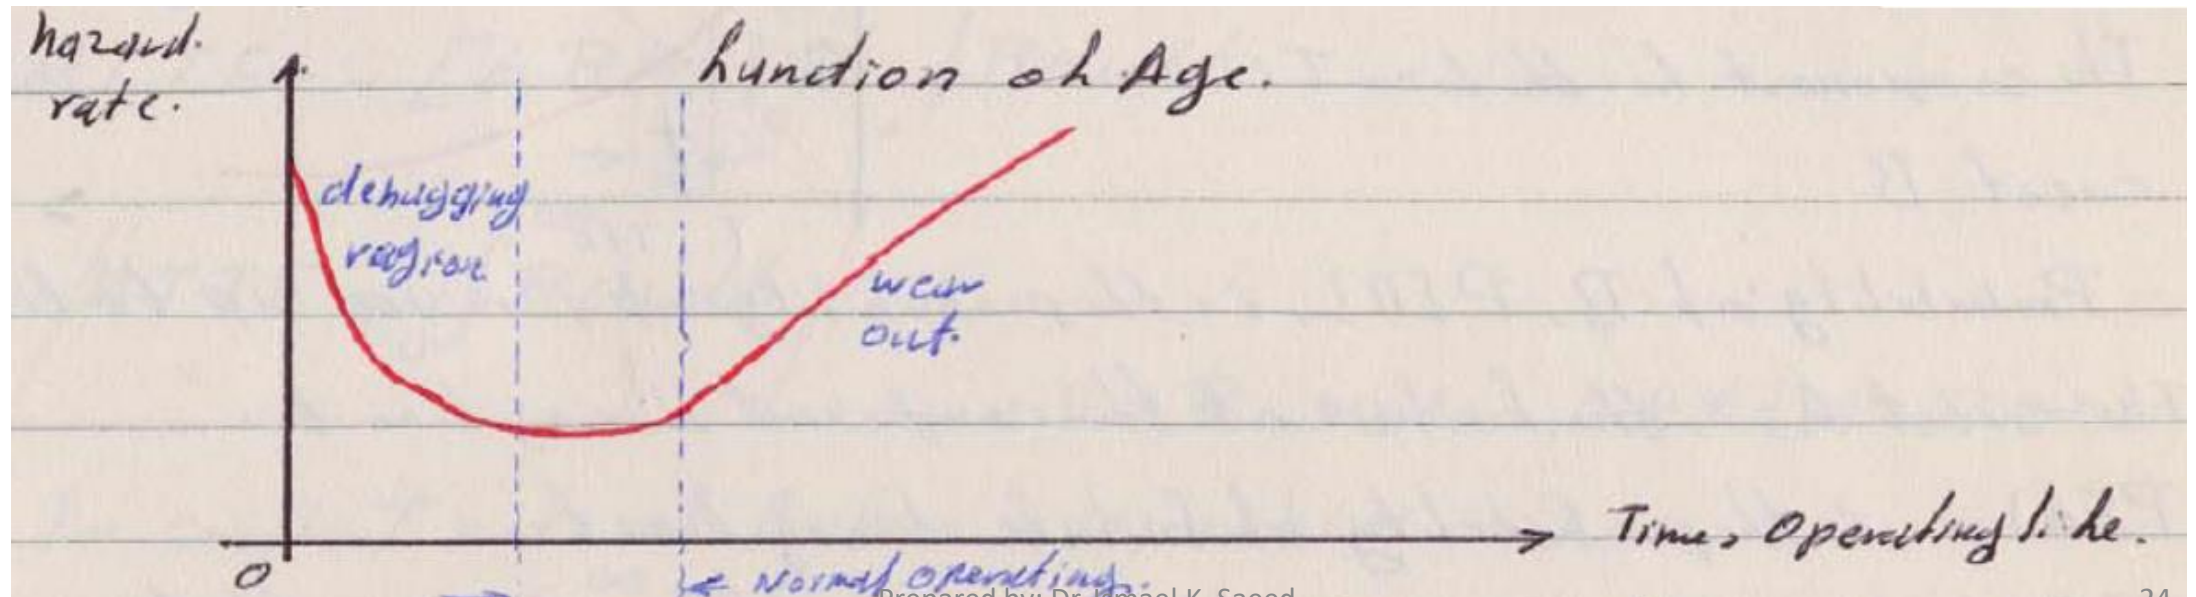 hazard.
rate.
function of Age.
debugging
region
wear
out.
Time, Operating life.
0
← Normal operating.
Prepared by: Dr. Ismael K. Saeed
24